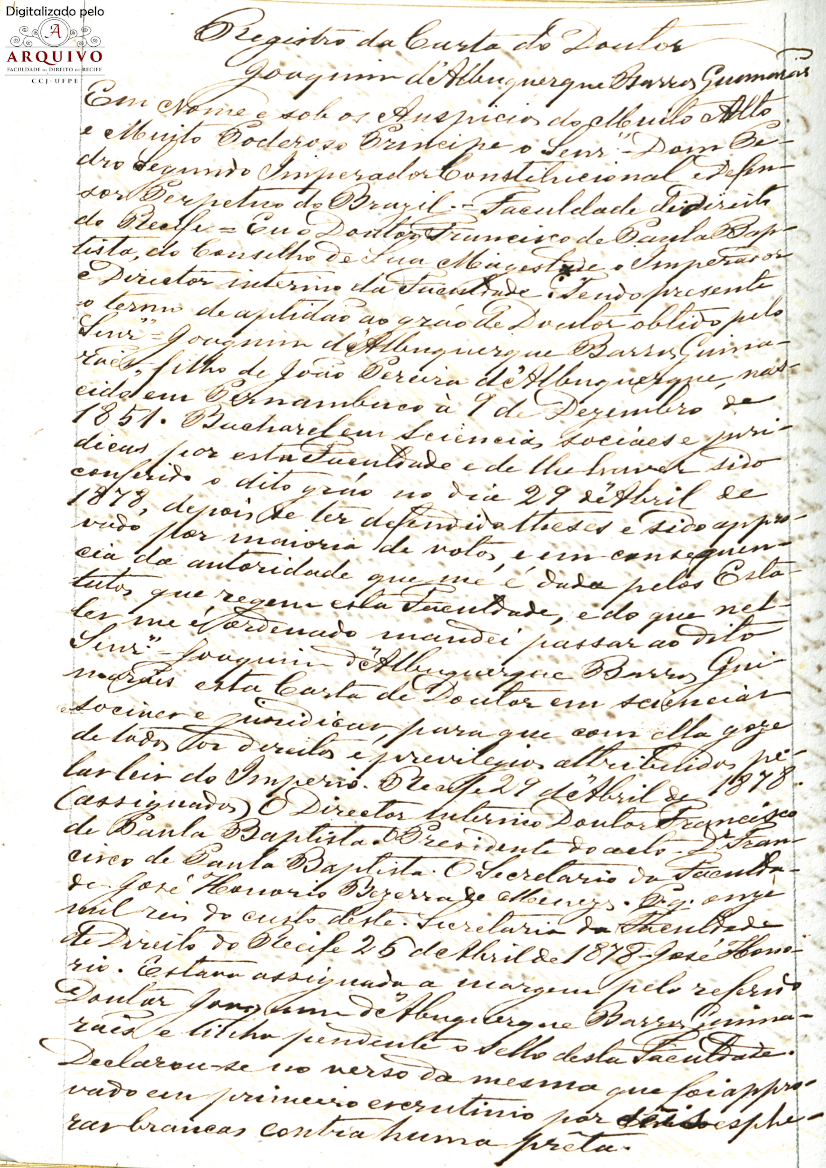 Digitalizado pelo
A
ARQUIVO
FACULDADE DE DIREITO DO RECIFE
CCJ-UFPE
Registro da Carta do Doutor
Joaquim d'Albuquerque Barros Guimarães
Em Nome e sob os Auspicios do Muito Alto
e Muito Poderoso Principe o Senr. Dom Pe-
dro Segundo Imperador Constitucional e Defen-
sor Perpetuo do Brazil = Faculdade de Direito
do Recife = Eu o Doutor Francisco de Paula Bap-
tista, do Conselho de Sua Magestade o Imperador
e Director interino da Faculdade. Tendo presente
o termo de aptidão ao gráo de Doutor obtido pelo
Senr. Joaquim d'Albuquerque Barros Guima-
rães, filho de João Pereira d'Albuquerque, nas-
cido em Pernambuco à 9 de Dezembro de
1851. Bacharel em Sciencias sociáes e juri-
dicas por esta Faculdade e de lhe haver sido
conferido o dito gráo no dia 29 d'Abril de
1878, depois de ter defendido theses e sido appro-
vado por maioria de votos, e em consequen-
cia da autoridade que me é dada pelos Esta-
tutos que regem esta Faculdade, e do que nel-
les me é ordenado mandei passar ao dito
Senr. Joaquim d'Albuquerque Barros Gui-
marães esta Carta de Doutor em sciencias
sociaes e juridicas, para que com ella goze
de todos os direitos e previlegios attribuidos pe-
las leis do Imperio. Recife 29 d'Abril de 1878.
(assignados) O Director interino Doutor Francisco
de Paula Baptista. O Presidente do acto Dr. Fran-
cisco de Paula Baptista. O Secretario da Faculda-
de José Honorio Bezerra de Menezes. Pg. onze
mil reis do custo deste. Secretaria da Faculdade
de Direito do Recife 25 d'Abril de 1878. José Hono-
rio. Estava assignada a margem pelo referido
Doutor Joaquim d'Albuquerque Barros Guima-
rães e tinha pendente o sello desta Faculdade.
Declarou-se no verso da mesma que foi appro-
vado em primeiro escrutinio por esphe-
ras brancas contra huma preta.